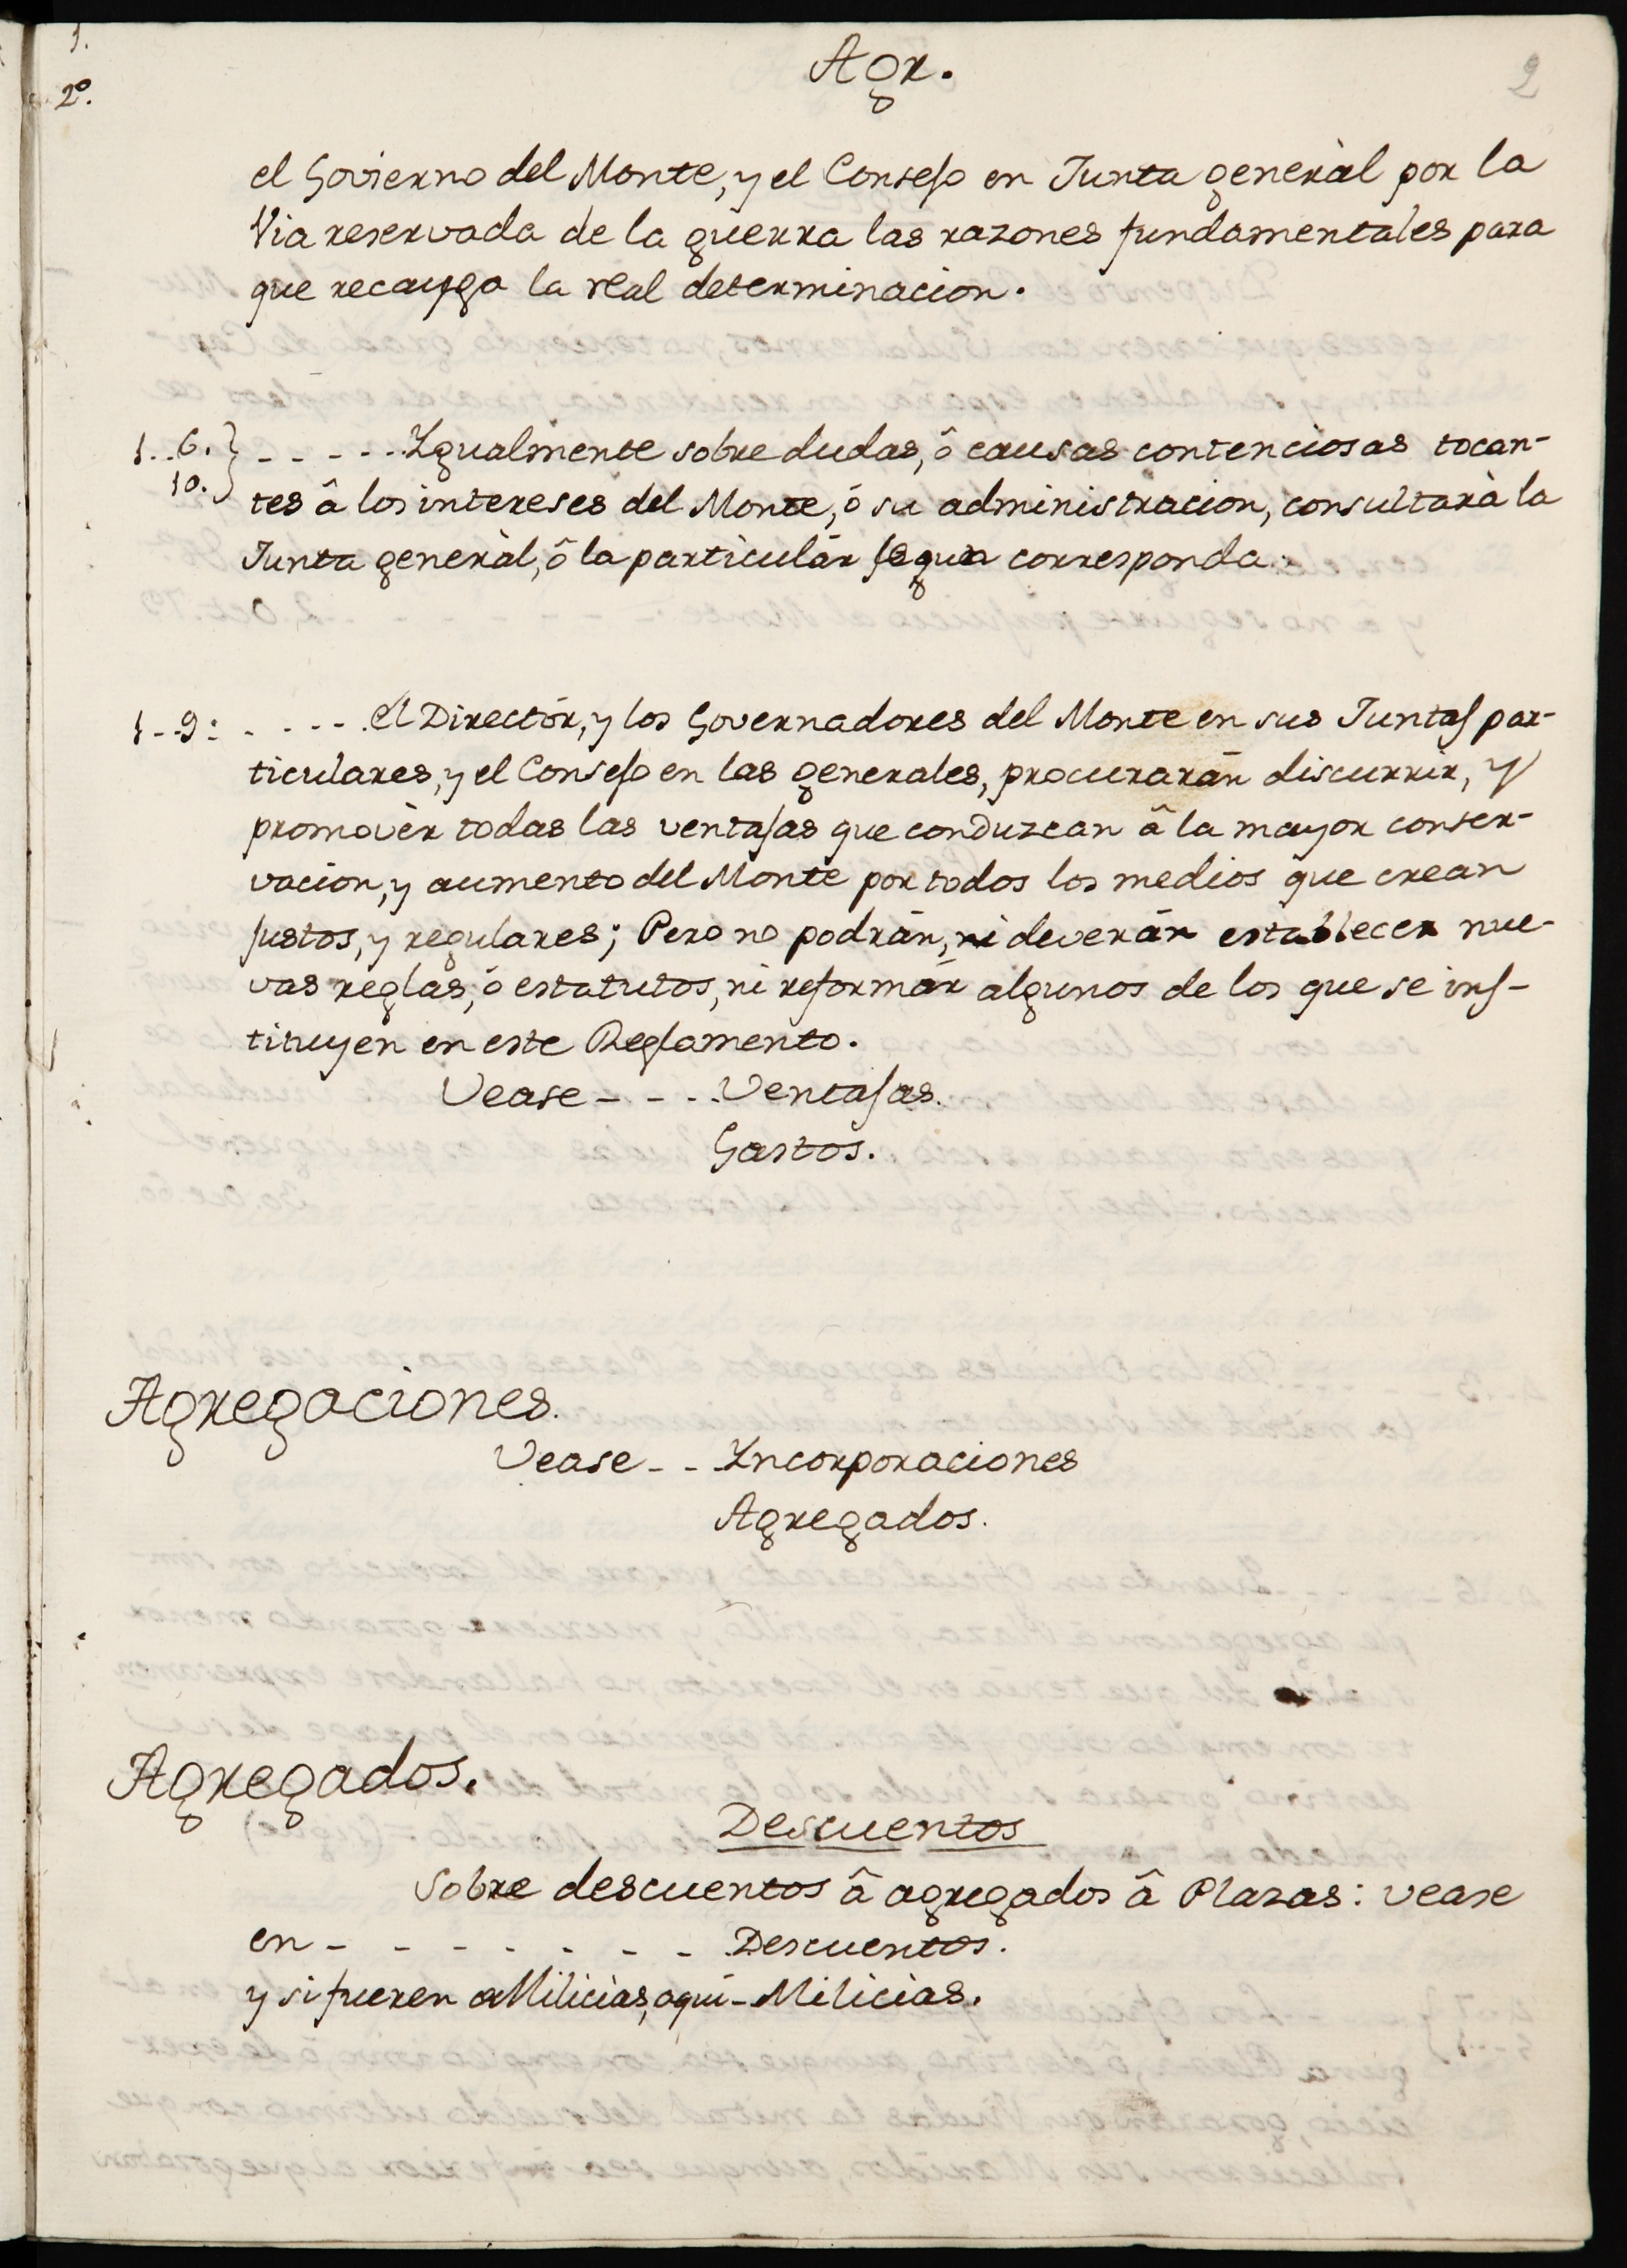 1.
2º.
Agr.
2
el Govierno del Monte, y el Consejo en Junta generàl por la
Via reservada de la guerra las razones fundamentales para
que recayga la real determinacion.
1..6.} - - - - -. Ygualmente sobre dudas, ô causas contenciosas tocan-
10.
tes â los intereses del Monte, ó su administracion, consultarà la
Junta generàl, ô la particulár segun corresponda.
1--9: . . - - -. el Directór, y los Governadores del Monte en sus Juntas par-
ticulares, y el Consejo en las generales, procurarán discurrir, y
promovèr todas las ventajas que conduzcan â la mayor conser-
vacion, y aumento del Monte por todos los medios que crean
justos, y regulares; Pero no podrán, ni deverán establecer nue-
vas reglas, ó estatutos, ni reformár algunos de los que se ins-
tituyen en este Reglamento.
Vease - - - . Ventajas.
Gastos.
Agregaciones.
Vease - - . Yncorporaciones
Agregados.
Agregados.
Descuentos
Sobre descuentos â agregados â Plazas: vease
en - - - - - - - - Descuentos.
y si fueren a Milicias, aqui - Milicias.